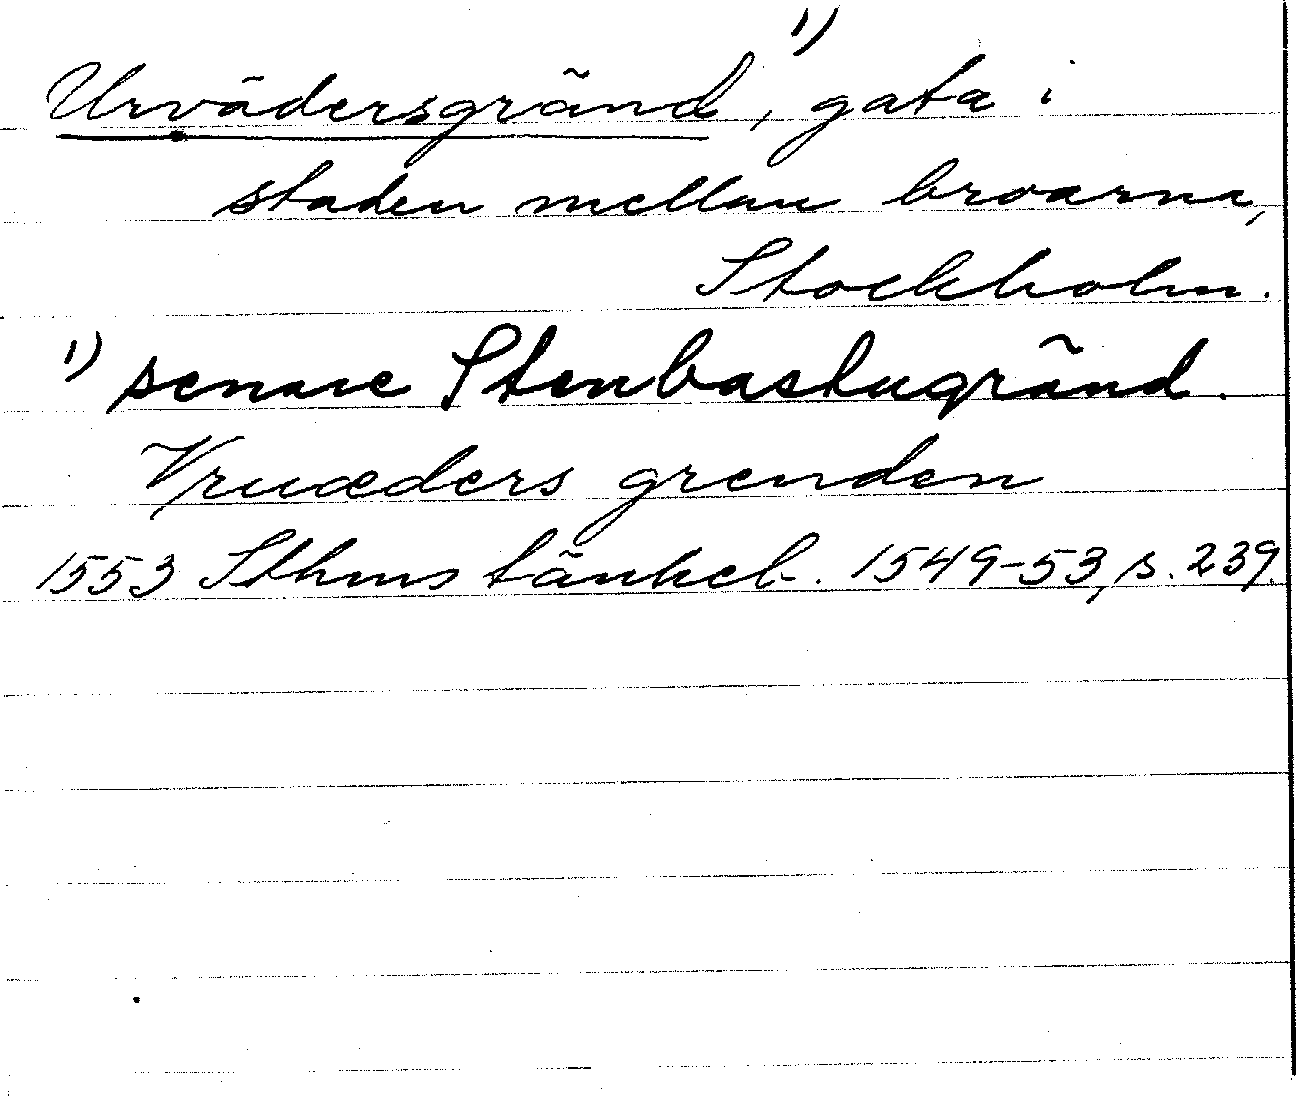 Urvädersgränd,¹⁾ gata i
staden mellan broarna,
Stockholm.
¹⁾ senare Stenbastugränd.
Vruæders grenden
1553 Sthms tänkeb. 1549-53, s. 239.